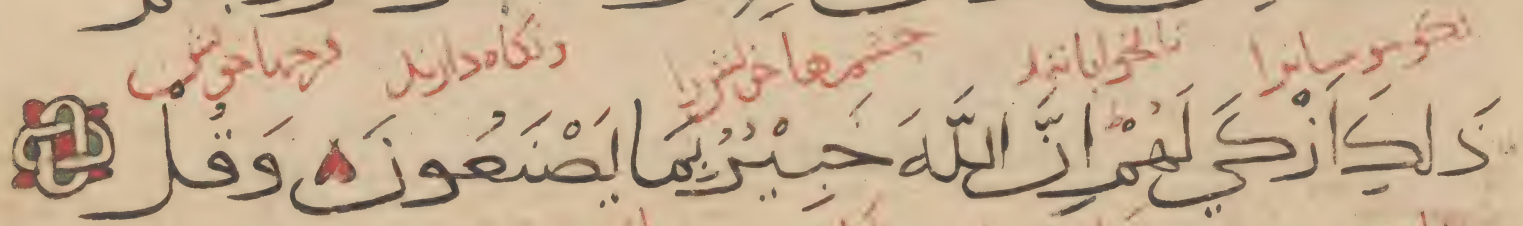 نكو مومنانرا تا بخوابانند چشمها خویش را و نگاه دارند فرجها خویش
ذَلِكَ اَزْكَي لَهُمْ اِنَّ اللَّهَ خَبِيْرٌ بِمَا يَصْنَعُونَ وَقُلْ